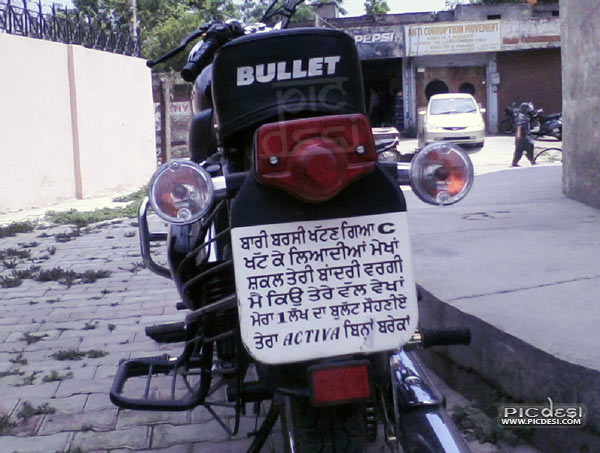 PEPSI
ANTI CORRUPTION MOVEMENT
BULLET
ਬਾਰੀ ਬਰਸੀ ਖੱਟਣ ਗਿਆ C
ਖੱਟ ਕੇ ਲਿਆਦੀਆਂ ਮੇਖਾਂ
ਸ਼ਕਲ ਤੇਰੀ ਬਾਂਦਰੀ ਵਰਗੀ
ਮੈ ਕਿਉ ਤੇਰੇ ਵੱਲ ਵੇਖਾਂ
ਮੇਰਾ 1 ਲੱਖ ਦਾ ਬੁਲਟ ਸੌਹਣੀਏ
ਤੇਰਾ ACTIVA ਬਿਨਾਂ ਬਰੇਕਾਂ
PICDESI
WWW.PICDESI.COM